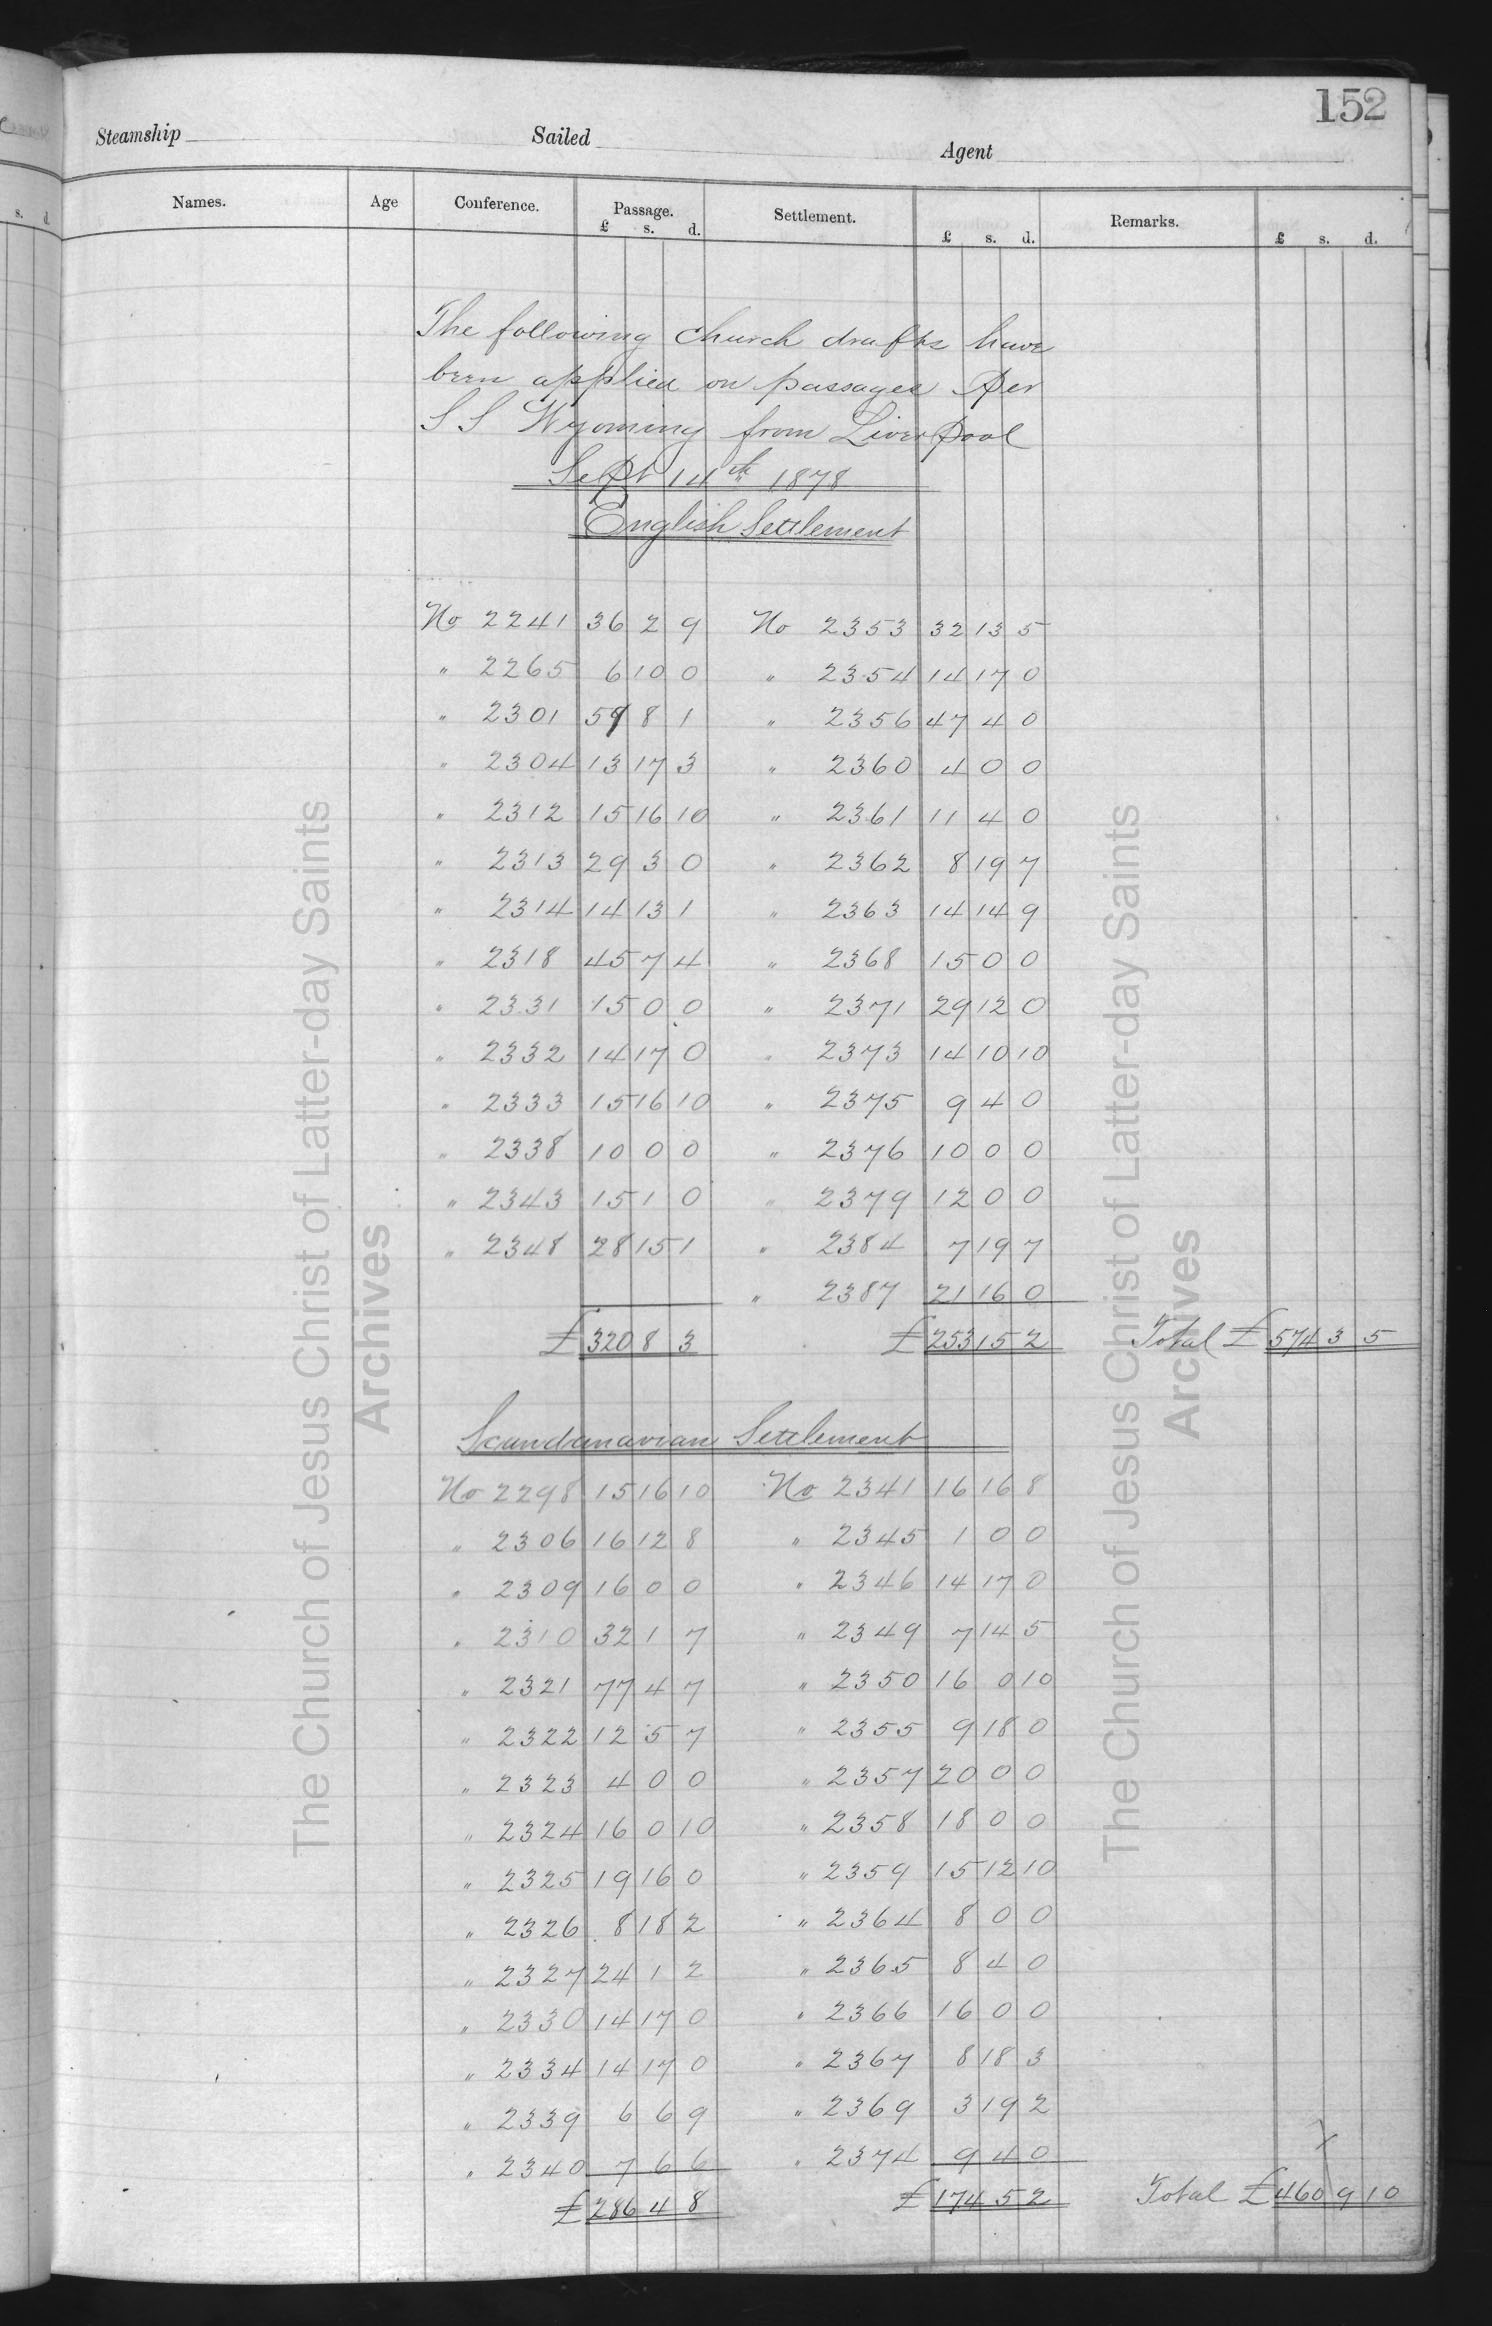 152
Steamship Sailed Agent
Names. Age Conference. Passage. Settlement. Remarks.
£ s. d. £ s. d. £ s. d.
The following Church drafts have
been applied on passages Per
S S Wyoming from LiverPool
SePt 14th 1878
English Settlement
No 2241 36 2 9 No 2353 32 13 5
" 2265 6 10 0 " 2354 14 17 0
" 2301 59 8 1 " 2356 47 4 0
" 2304 13 17 3 " 2360 4 0 0
" 2312 15 16 10 " 2361 11 4 0
" 2313 29 3 0 " 2362 8 19 7
" 2314 14 13 1 " 2363 14 14 9
" 2318 45 7 4 " 2368 15 0 0
" 2331 15 0 0 " 2371 29 12 0
" 2332 14 17 0 " 2373 14 10 10
" 2333 15 16 10 " 2375 9 4 0
" 2338 10 0 0 " 2376 10 0 0
" 2343 15 1 0 " 2379 12 0 0
" 2348 28 15 1 " 2384 7 19 7
" 2387 21 16 0
£ 320 8 3 £ 253 15 2 Total £ 574 3 5
Scandanavian Settlement
No 2298 15 16 10 No 2341 16 16 8
" 2306 16 12 8 " 2345 1 0 0
" 2309 16 0 0 " 2346 14 17 0
" 2310 32 1 7 " 2349 7 14 5
" 2321 77 4 7 " 2350 16 0 10
" 2322 12 5 7 " 2355 9 18 0
" 2323 4 0 0 " 2357 20 0 0
" 2324 16 0 10 " 2358 18 0 0
" 2325 19 16 0 " 2359 15 12 10
" 2326 8 18 2 " 2364 8 0 0
" 2327 24 1 2 " 2365 8 4 0
" 2330 14 17 0 " 2366 16 0 0
" 2334 14 17 0 " 2367 8 18 3
" 2339 6 6 9 " 2369 3 19 2
" 2340 7 6 6 " 2374 9 4 0
£ 286 4 8 £ 174 5 2 Total £ 460 9 10
The Church of Jesus Christ of Latter-day Saints
Archives
The Church of Jesus Christ of Latter-day Saints
Archives